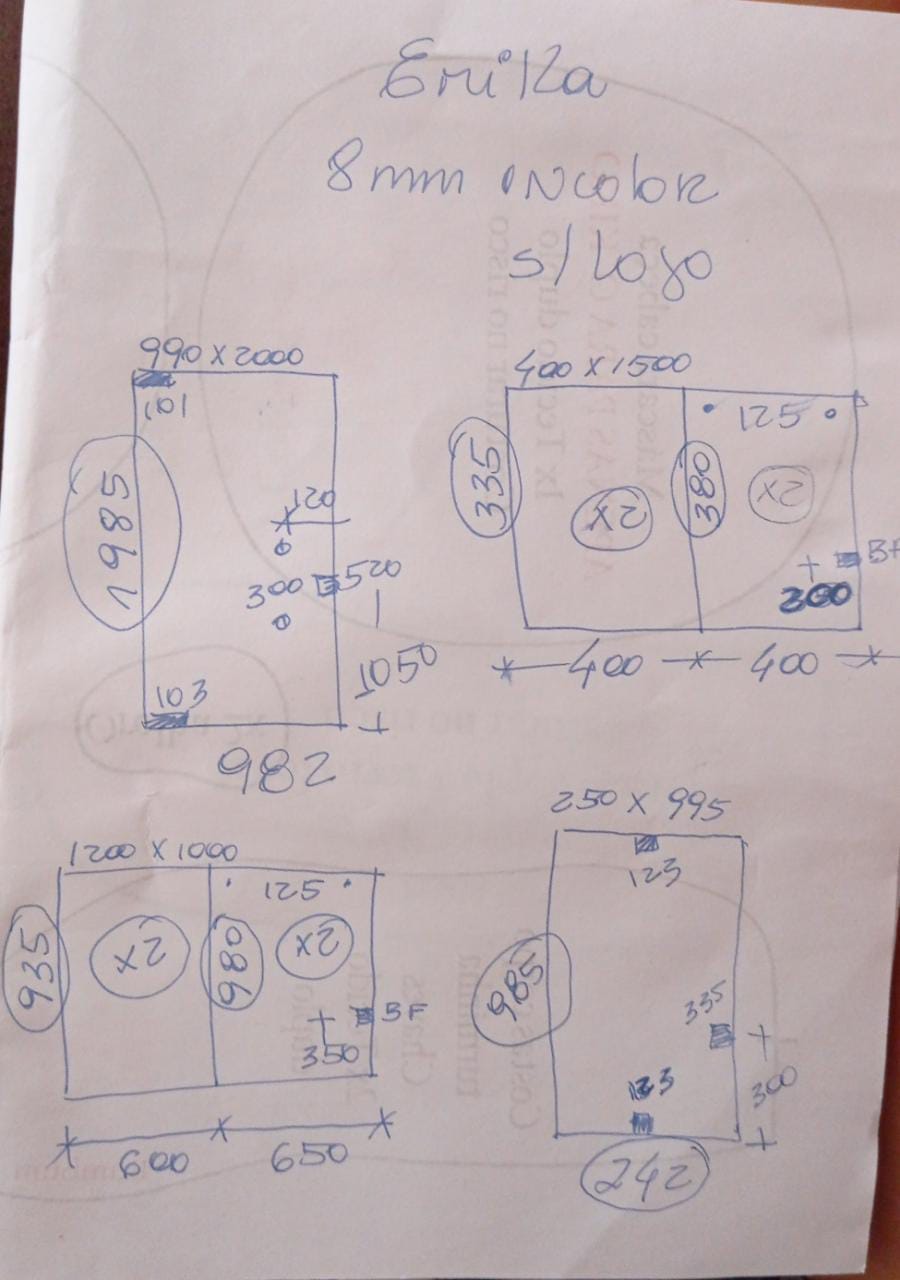 Erika
8mm incolor
s/ Logo
990 X 2000
101
1985
120
300
520
1050
103
982
400 X 1500
335
X2
380
125
X2
BF
300
400
400
1200 X 1000
935
X2
980
125
X2
BF
350
600
650
250 X 995
123
985
335
300
123
242